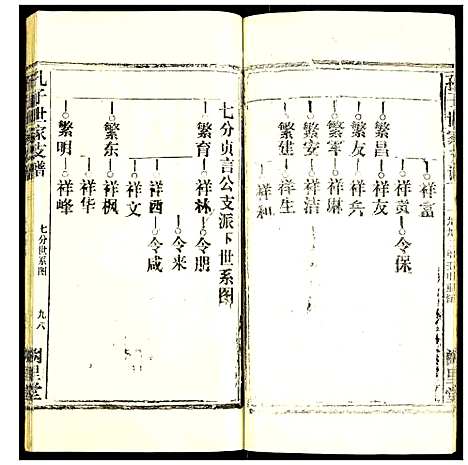 祥富
繁昌 祥贵 令保
祥友
繁友 祥兵
繁军 祥麻
繁安 祥洁
繁建 祥生
祥
七分贞言公支派下世系图
繁育 祥林 令朋
令来
祥酉 令咸
繁东 祥文
祥枫
祥华
繁明 祥峰
孔子世家支谱
七分世系图
九八
阙里堂